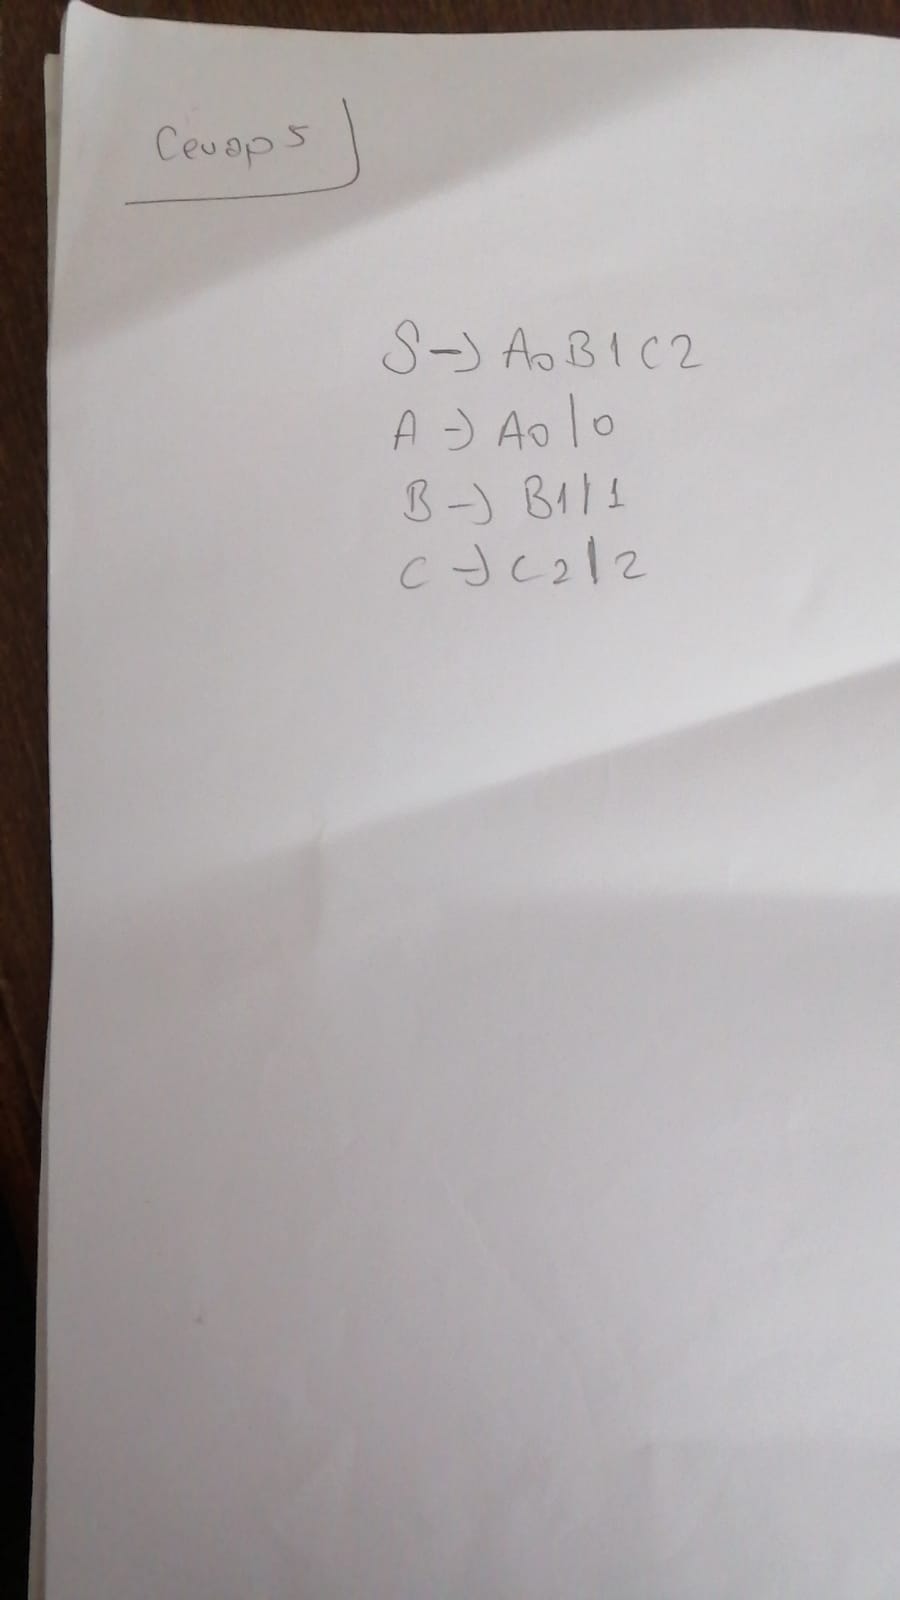 Cevap 5
S -> A0B1C2
A -> A0|0
B -> B1|1
C -> C2|2